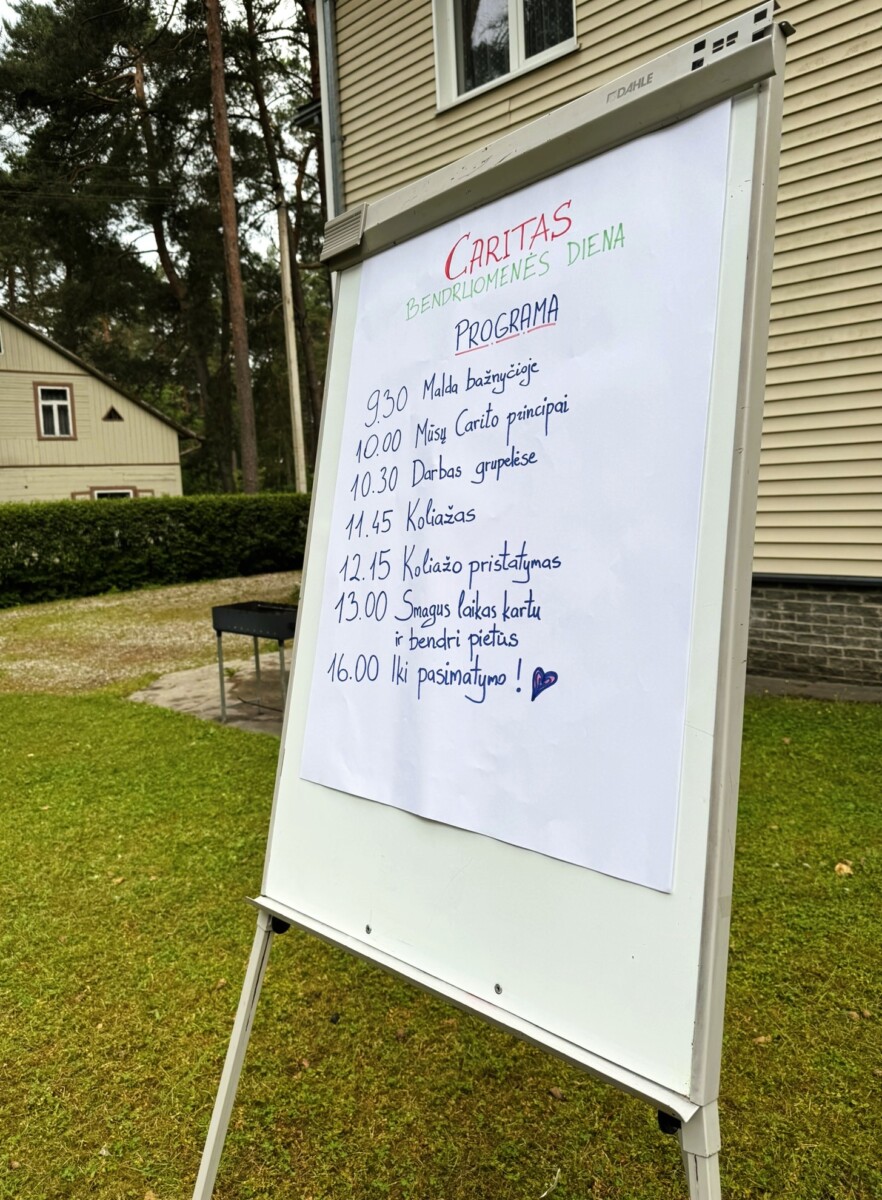 DAHLE
CARITAS
BENDRUOMENĖS DIENA
PROGRAMA
9.30 Malda bažnyčioje
10.00 Mūsų Carito principai
10.30 Darbas grupelėse
11.45 Koliažas
12.15 Koliažo pristatymas
13.00 Smagus laikas kartu
ir bendri pietūs
16.00 Iki pasimatymo!